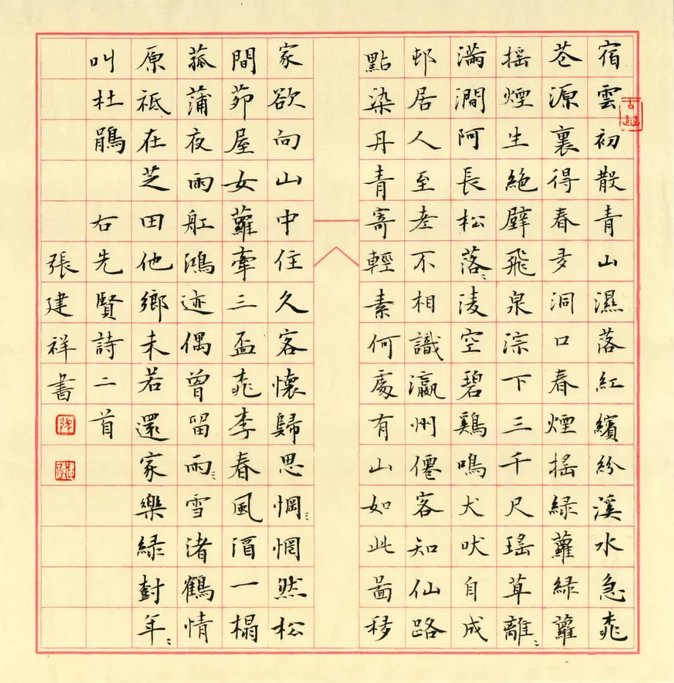 宿雲初散青山濕落紅繽紛溪水急桃
花源裏得春多洞口春煙摇綠蘿綠蘿
摇煙生絕壁飛泉淙下三千尺瑤草離〻
满澗阿長松落〻凌空碧鷄鳴犬吠自成
邨居人至老不相識瀛州僊客知仙路
點染丹青寄輕素何處有山如此啚移
家欲向山中住久客懷歸思惘〻惘然松
間茆屋女蘿牽三盃桃李春風酒一榻
菰蒲夜雨舡鴻迹偶曾留雨〻雪渚鶴情
原衹在芝田他鄉未若還家樂綠樹年〻
叫杜鵑 右先賢詩二首
張建祥書